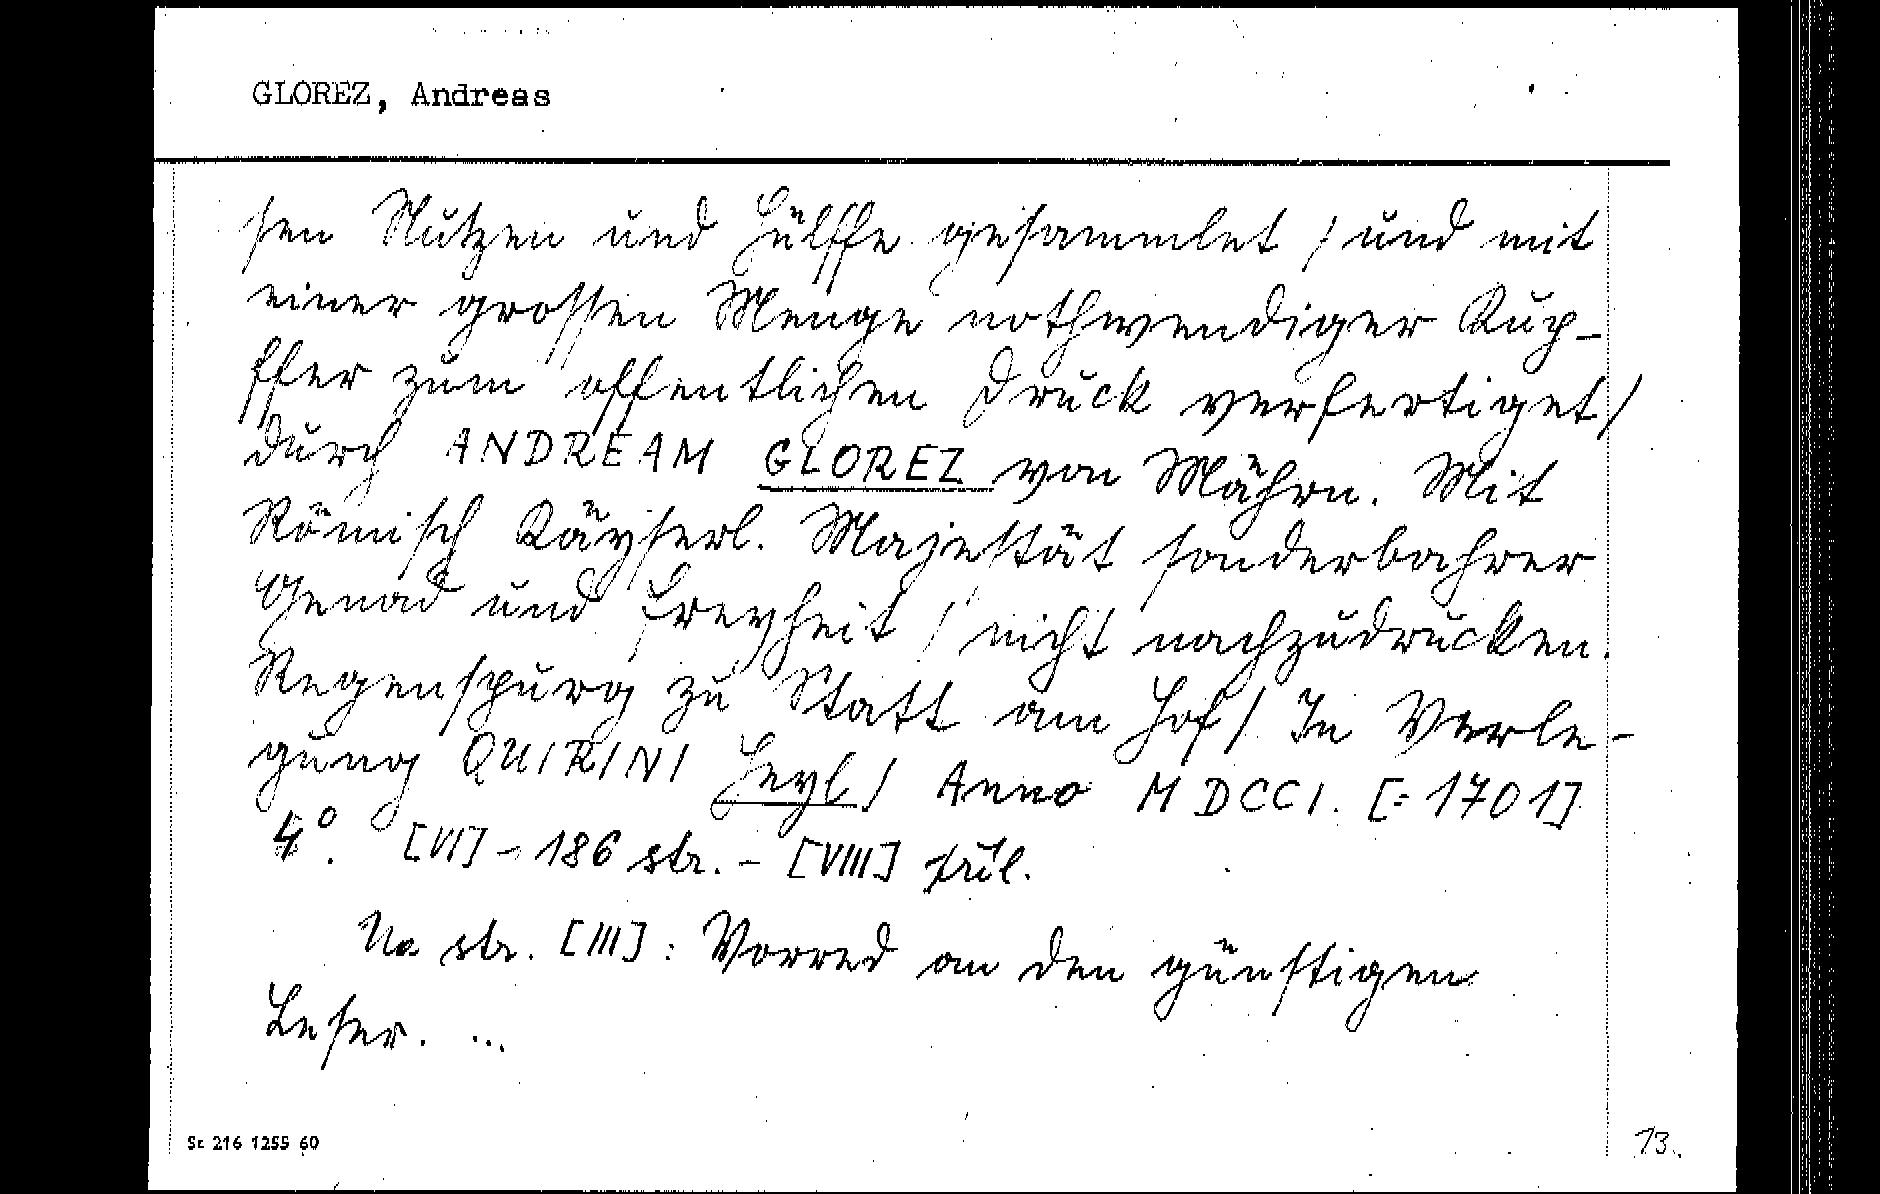 GLOREZ, Andreas
sen Nutzen und Hülffe gesammlet / und mit
einer grossen Menge nothwendiger Kup-
ffer zum offentlichen Druck verfertiget /
durch ANDREAM GLOREZ von Mähren. Mit
Römisch Käyserl. Majestät sonderbahrer
Genad und Freyheit / nicht nachzudrucken.
Regenspurg zu Statt am Hof / In Verle-
gung QUIRINI Heyl / Anno MDCCI. [=1701]
4°. [VI] - 186 str. - [VIII] příl.
Na str. [III]: Vorred an den günstigen
Leser. ...
Sc 216 1255 60
13.